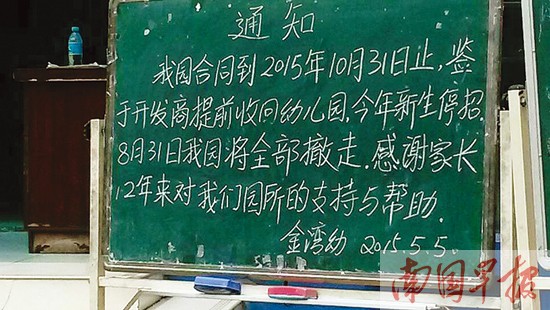 通知
我园合同到2015年10月31日止,鉴
于开发商提前收回幼儿园.今年新生停招.
8月31日我园将全部撤走.感谢家长
12年来对我们园所的支持与帮助.
金湾幼 2015.5.5.
南国早报